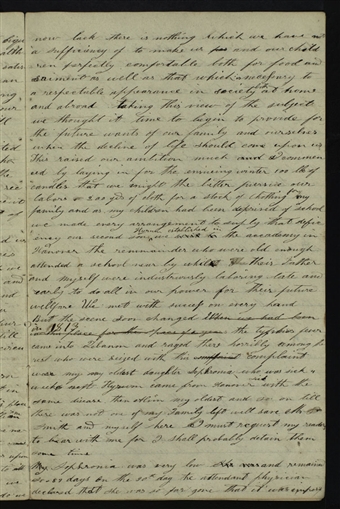 now lack there is nothing which we have not
a sufficiency of to make us and our child
ren perfectly comfortable both for food and
raiment as well as that which is necessary to
a respectable appearance in society at home
and abroad taking this view of the subject
we thought it time to begin to provide for
the future wants of our family and ourselves
when the decline of life should come upon us
This raised our ambition much and I commen
ced by laying in for the ensuing winter 100 lb of
candles that we might the better pursue our
labors & 200 yds of cloth for a stock of clothing for my
family and as my children had been deprived of school
we made every arrangement to supply that defic
iency our second son Hyrum established in the accademy in
Hanover the remainder who were old enough
attended a school near by while their Father
and myself were industriously laboring late and
early to do all in our power for their future
welfare We met with success on every hand
But the scene soon changed
In 1813 the typhus fever
came into Lebanon and raged there horribly among the
rest who were seized with this complaint
was my oldest daughter Sophronia who was sick 4
weeks next Hyrum came from Hanover sick with the
same disease then Alvin my oldest and so on till
there was not one of my family left well save Mr
Smith and myself here I must request my reader
to bear with me for I shall probably detain them
some time
My Sophronia was very low and remained
so 89 days on the 90th day the attendant physician
declared that she was so far gone that it was impos